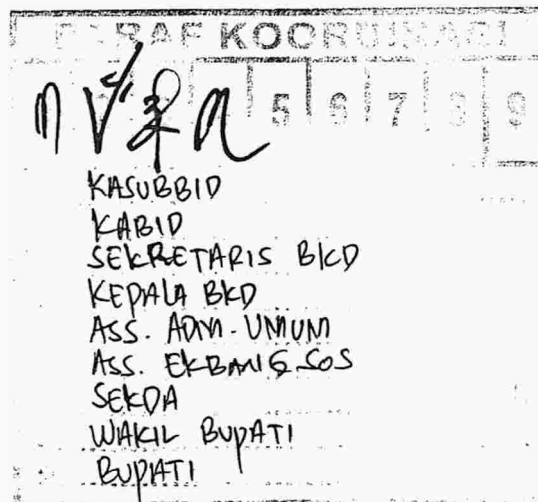 PARAF KOORDINASI
5 6 7 8 9
KASUBBID
KABID
SEKRETARIS BKD
KEPALA BKD
ASS. ADM. UMUM
ASS. EKBANG & SOS
SEKDA
WAKIL BUPATI
BUPATI